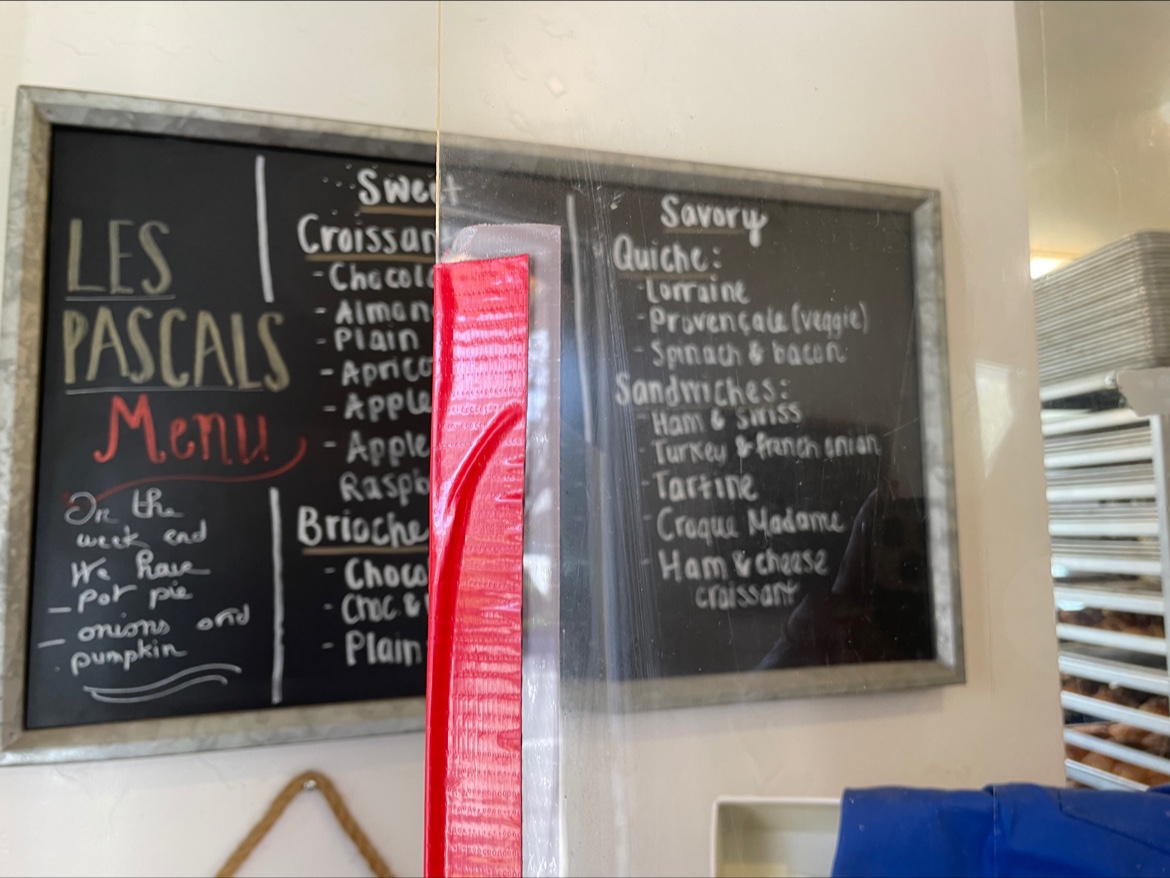 LES
PASCALS
Menu
On the
week end
We have
- pot pie
- onions and
pumpkin
Sweet
- Plain
- Apple
- Apple
- Plain
Savory
Quiche:
- Lorraine
- Provençale (veggie)
- Spinach & bacon
Sandwiches:
- Ham & Swiss
- Turkey & french onion
- Tartine
- Croque Madame
- Ham & cheese
croissant